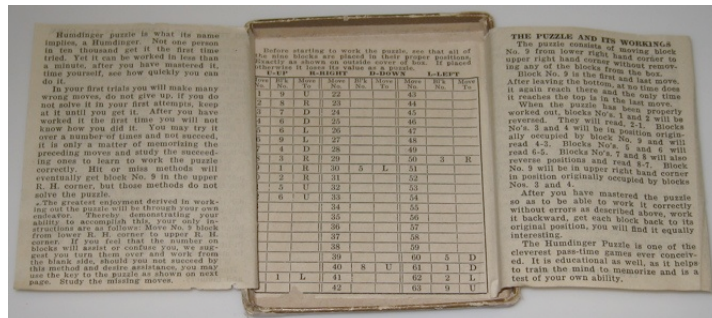 Humdinger puzzle is what its name
implies, a Humdinger. Not one person
in ten thousand get it the first time
tried. Yet it can be worked in less than
a minute, after you have mastered it,
time yourself, see how quickly you can
do it.
In your first trials you will make many
wrong moves, do not give up, if you do
not solve it in your first attempts, keep
at it until you get it. After you have
worked it the first time you will not
know how you did it. You may try it
over a number of times and not succeed,
it is only a matter of memorizing the
preceding moves and study the succeed-
ing ones to learn to work the puzzle
correctly. Hit or miss methods will
eventually get block No. 9 in the upper
R. H. corner, but those methods do not
solve the puzzle.
The greatest enjoyment derived in work-
ing out the puzzle will be through your own
endeavor. Thereby demonstrating your
ability to accomplish this, your only in-
structions are as follows: Move No. 9 block
from lower R. H. corner to upper R. H.
corner. If you feel that the number on
blocks will assist or confuse you, we sug-
gest you turn them over and work from
the blank side, should you not succeed by
this method and desire assistance, you may
use the key to the puzzle as shown on next
page. Study the missing moves.
Before starting to work the puzzle, see that all of
the nine blocks are placed in their proper positions,
Exactly as shown on outside cover of box. If placed
otherwise it loses its value as a puzzle.
U-UP R-RIGHT D-DOWN L-LEFT
No. Bl'k No. Move To Move No. Bl'k No. Move To Move No. Bl'k No. Move To
9 U 22 43
2 8 R 23 44
3 7 D 24 45
6 D 25 46
6 L 26 47
9 L 27 48
4 D 28 49
3 R 29 50 3 R
1 R 30 5 L 51
2 R 31 52
5 U 32 53
33 54
34 55
35 56
36 57
37 58
38 59
39 60 5 D
40 8 U 61 1 D
1 L 41 62 2 L
42 63 9 U
THE PUZZLE AND ITS WORKINGS
The puzzle consists of moving block
No. 9 from lower right hand corner to
upper right hand corner without remov-
ing any of the blocks from the box.
Block No. 9 is the first and last move.
After leaving the bottom, at no time does
it again reach there and the only time
it reaches the top is in the last move.
When the puzzle has been properly
worked out, blocks No's. 1 and 2 will be
reversed. They will read, 2-1. Blocks
No's. 3 and 4 will be in position origin-
ally occupied by block No. 9 and will
read 4-3. Blocks No's. 5 and 6 will
read 6-5. Blocks No's. 7 and 8 will also
reverse positions and read 8-7. Block
No. 9 will be in upper right hand corner
in position originally occupied by blocks
Nos. 3 and 4.
After you have mastered the puzzle
so as to be able to work it correctly
without errors as described above, work
it backward, get each block back to its
original position, you will find it equally
interesting.
The Humdinger Puzzle is one of the
cleverest pass-time games ever conceiv-
ed. It is educational as well, as it helps
to train the mind to memorize and is a
test of your own ability.